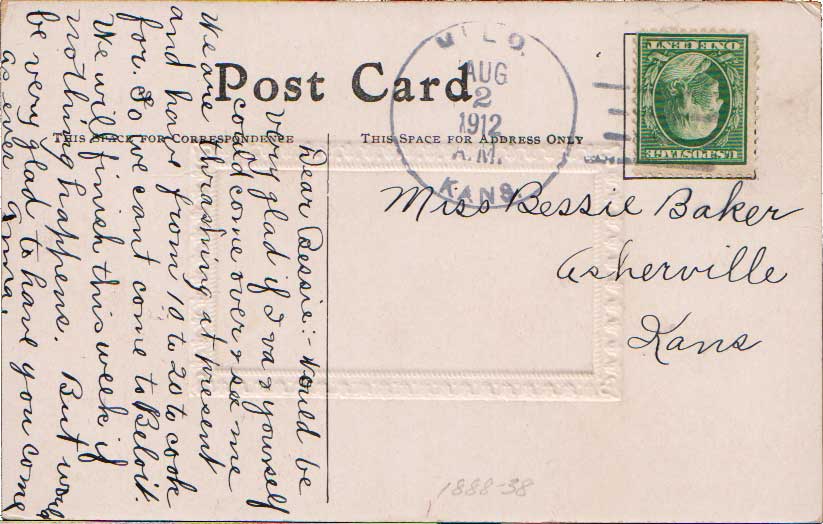 Post Card
THIS SPACE FOR CORRESPONDENCE
THIS SPACE FOR ADDRESS ONLY
MILO
AUG
2
1912
A.M.
KANS.
U.S. POSTAGE
ONE CENT
Miss Bessie Baker
Asherville
Kans
Dear Bessie:- Would be
very glad if Iva & yourself
could come over & see me
We are thrashing at present
and have from 10 to 20 to cook
for. So we cant come to Beloit.
We will finish this week if
nothing happens. But would
be very glad to have you come
as ever Anna.
1888-38